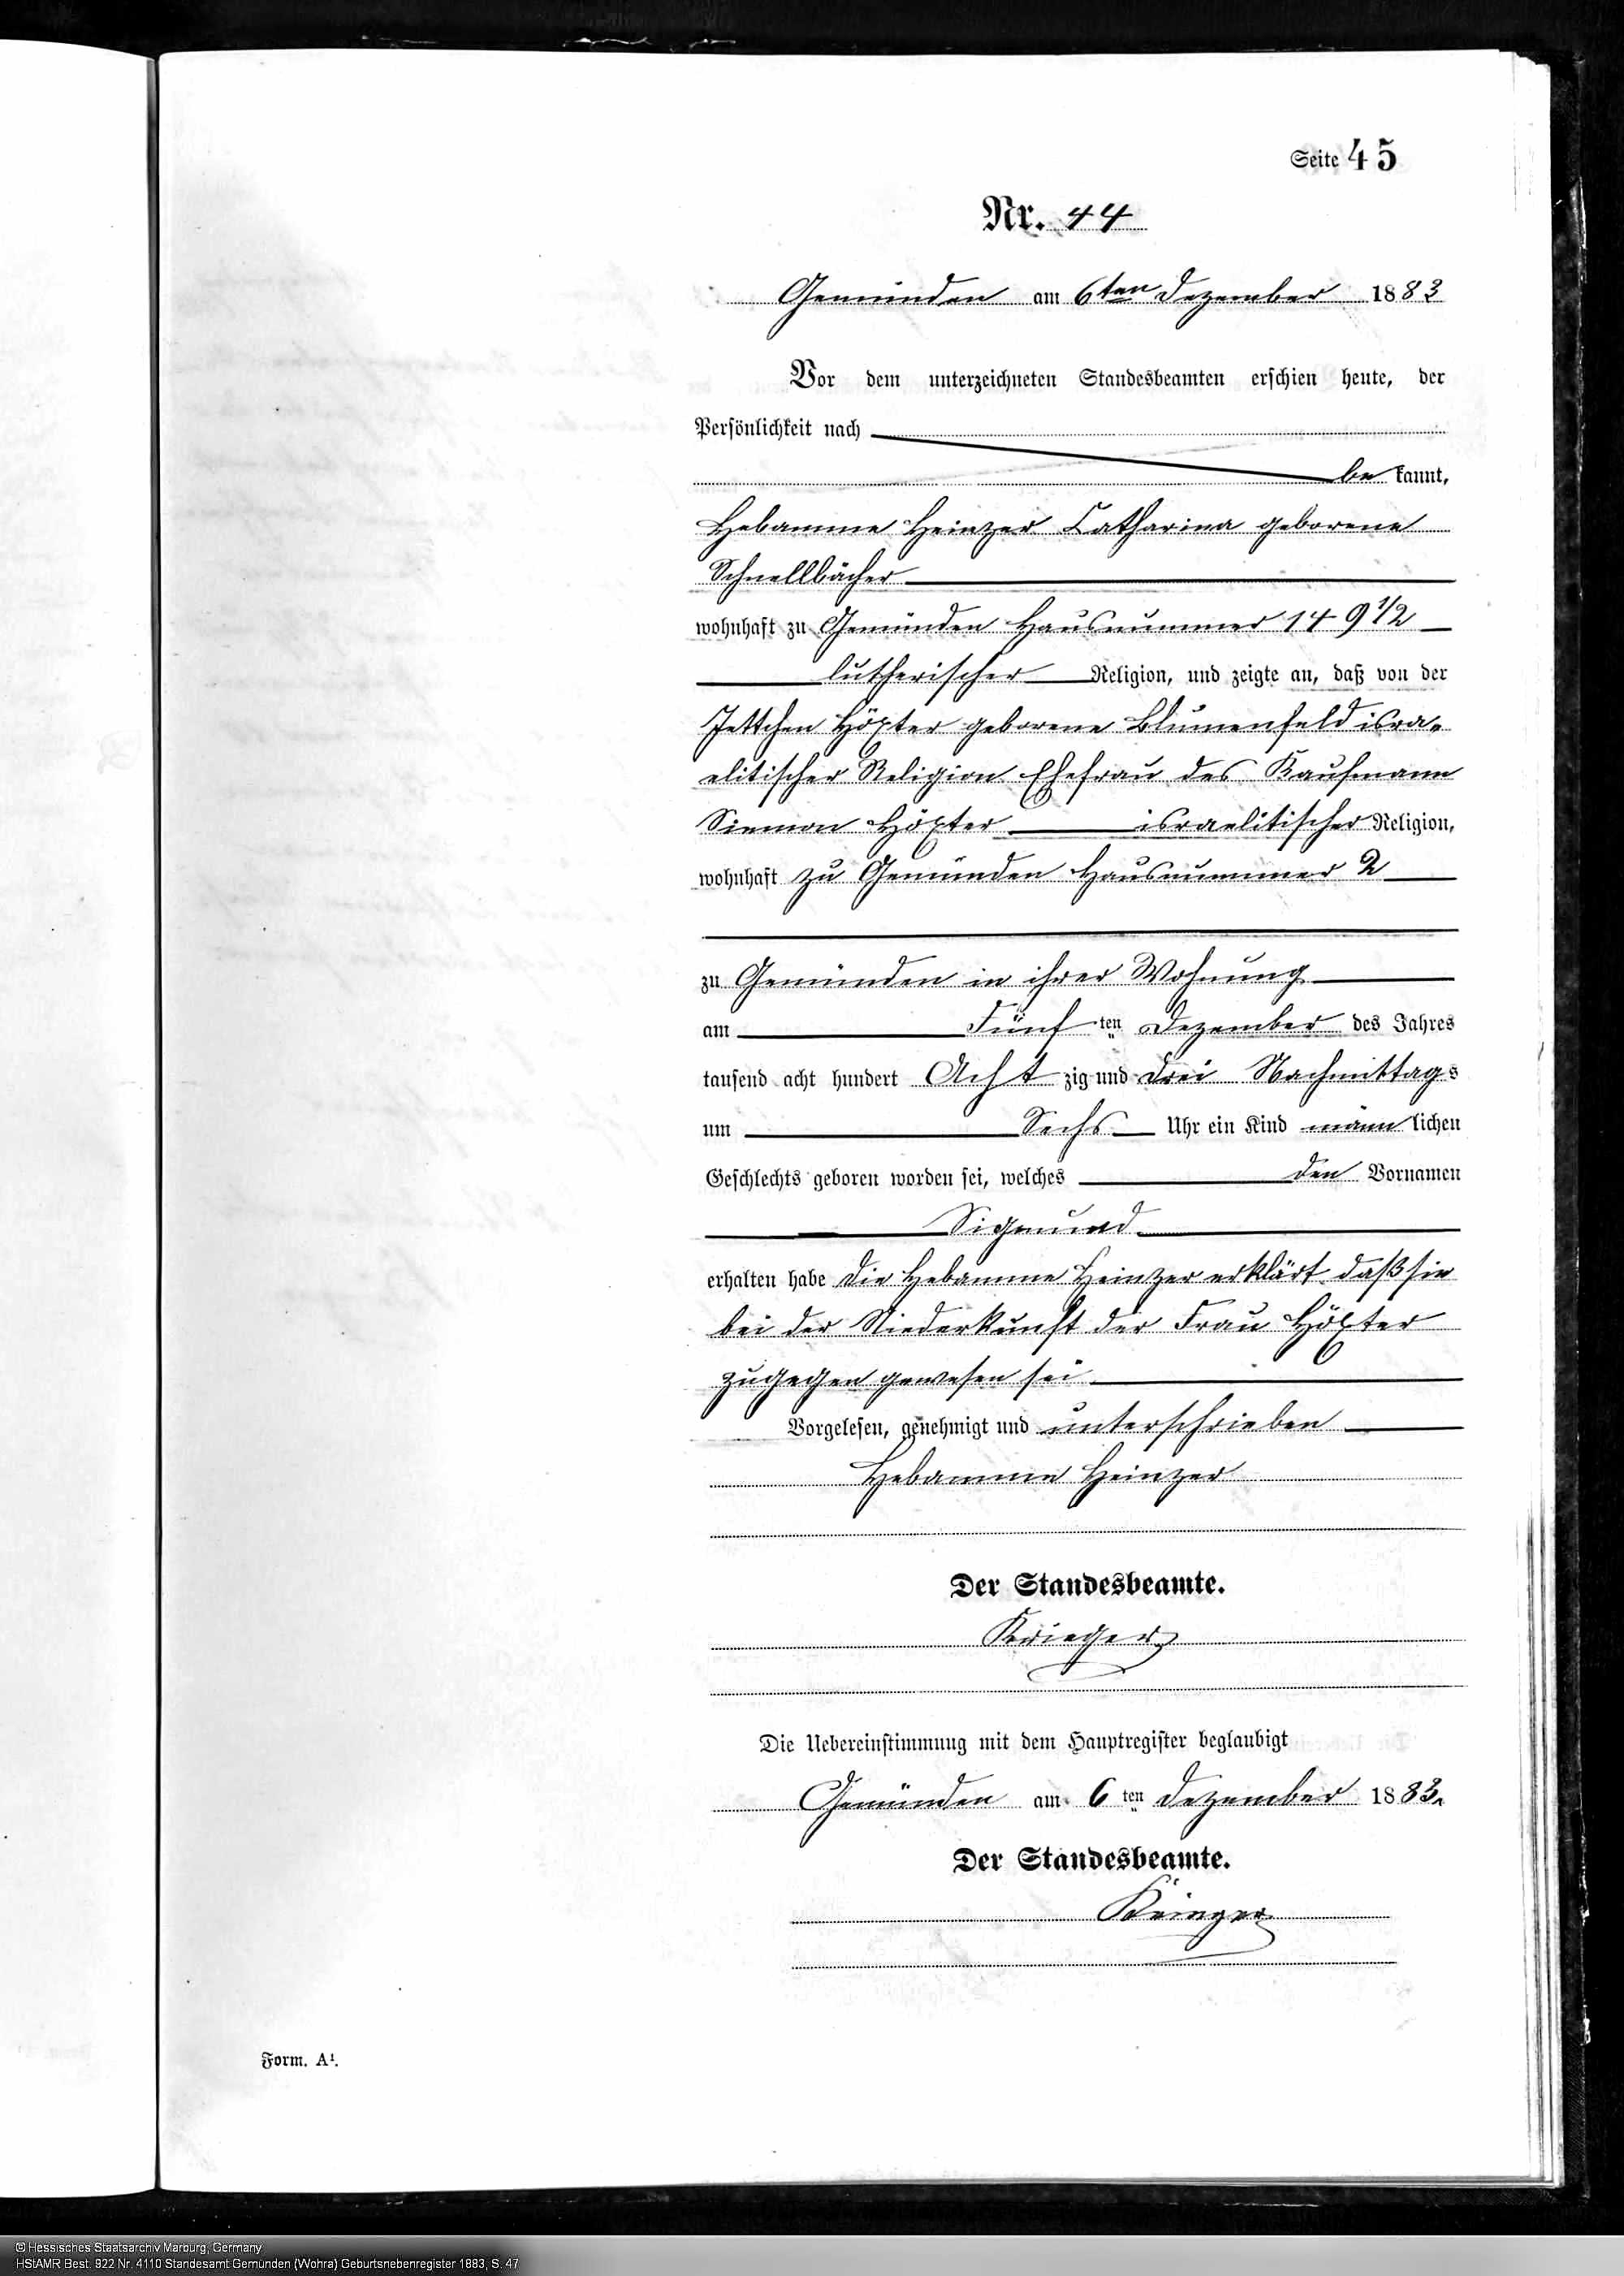 Seite 45
Nr. 44
Gemünden am 6ten Dezember 1883
Vor dem unterzeichneten Standesbeamten erschien heute, der
Persönlichkeit nach
be kannt,
Hebamme Heinzer Catharina geborene
Schnellbächer
wohnhaft zu Gemünden Hausnummer 149 1/2
lutherischer Religion, und zeigte an, daß von der
Jettchen Höxter geborene Blumenfeld isra-
elitischer Religion Ehefrau des Kaufmann
Siemon Höxter israelitischer Religion,
wohnhaft zu Gemünden Hausnummer 2
zu Gemünden in ihrer Wohnung
am Fünf ten Dezember des Jahres
tausend acht hundert Acht zig und drei Nachmittags
um Sechs Uhr ein Kind männ lichen
Geschlechts geboren worden sei, welches den Vornamen
Sigmund
erhalten habe die Hebamme Heinzer erklärt daß sie
bei der Niederkunft der Frau Höxter
zugegen gewesen sei
Vorgelesen, genehmigt und unterschrieben
Hebamme Heinzer
Der Standesbeamte.
Krieger
Die Uebereinstimmung mit dem Hauptregister beglaubigt
Gemünden am 6 ten Dezember 1883.
Der Standesbeamte.
Krieger
Form. A¹.
© Hessisches Staatsarchiv Marburg, Germany
HStAMR Best. 922 Nr. 4110 Standesamt Gemünden (Wohra) Geburtsnebenregister 1883, S. 47